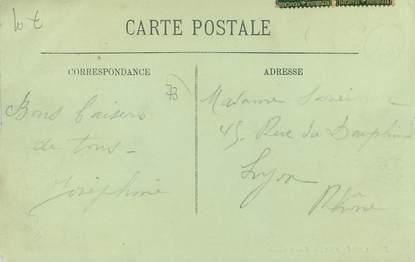 CARTE POSTALE
CORRESPONDANCE
ADRESSE
Bons baisers
de tous –
Joséphine
Madame
45, Rue du Dauphiné
Lyon
Rhône